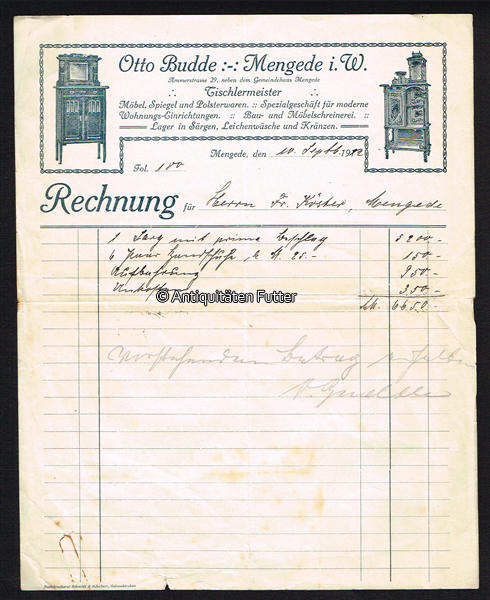 Otto Budde :-: Mengede i. W.
Ammerstrasse 29, neben dem Gemeindehaus Mengede
Tischlermeister
Möbel, Spiegel und Polsterwaren. :: Spezialgeschäft für moderne
Wohnungs-Einrichtungen. :: Bau- und Möbelschreinerei. ::
Lager in Särgen, Leichenwäsche und Kränzen.
Mengede, den 10. Septb. 1922
Fol. 100
Rechnung für Herrn Fr. Köster, Mengede
1 Sarg mit prima Beschlag 5200.-
6 Paar Handschuhe, a M. 25.- 150.-
Aufbahrung 950.-
350.-
Mk. 6650.-
© Antiquitäten Futter
Vorstehenden Betrag erhalten
O.